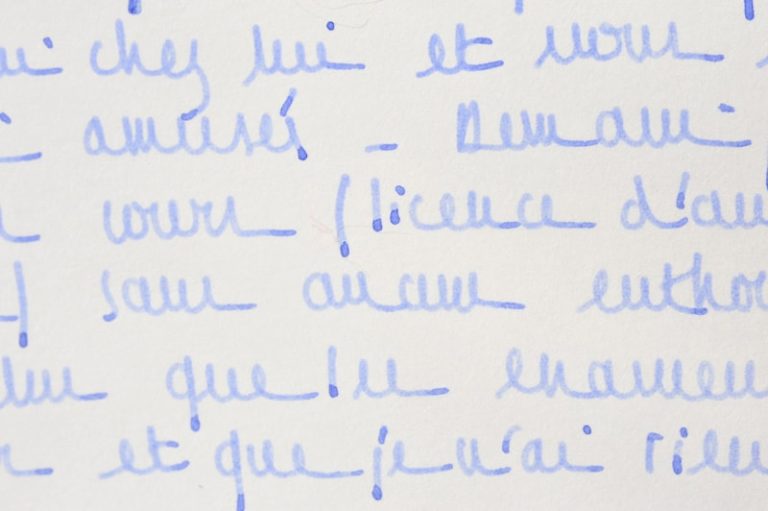 chez lui et nous
amusés _ Demain
cours (licence d'an
) sans aucun enthou
que les examen
et que je n'ai rien